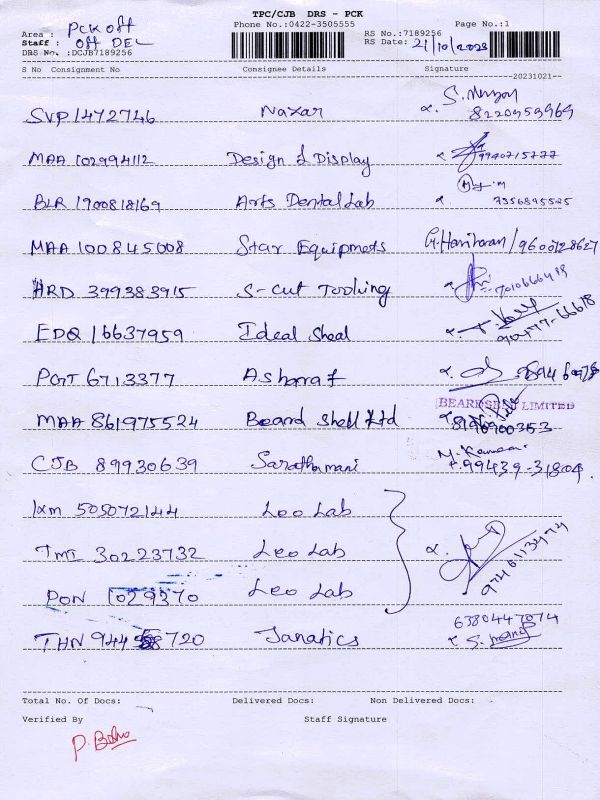 TPC/CJB DRS - PCK
Phone No.:0422-3505555 Page No.:1
Area : PCK off RS No.:7189256
Staff : Off DEL RS Date: 21/10/2023
DRS No. :DCJB7189256
S No Consignment No Consignee Details Signature
20231021--
SVP 1472746 Nazar 8220959969
MAA 102994112 Design & Display 9940715777
BLR 1900818169 Arts Dental Lab 7356895525
MAA 100845008 Star Equipmets G. Hariharan / 9600728627
HRD 399383915 S-cut Tooling
EDQ 16637959 Ideal Sheal 90477-66618
PGT 6713377 Ashraf
BEARDSELL LIMITED
MAA 861975524 Beard Shell Ltd
CJB 89930639 Sarathamani 99439-31804
Ixm 505072144 Leo Lab
TMI 30223732 Leo Lab 9746113474
PON 1029370 Leo Lab
THN 944 720 Janatics 6380447074
Total No. Of Docs: Delivered Docs: Non Delivered Docs:
Verified By Staff Signature